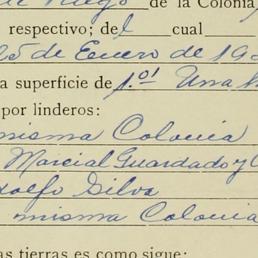 de la Colonia
respectivo; del cual
25 de Enero de 19
a superficie de 1.01 Una
por linderos:
misma Colonia
Marcial Guardado y
dolfo Silva
misma Colonia
as tierras es como sigue: